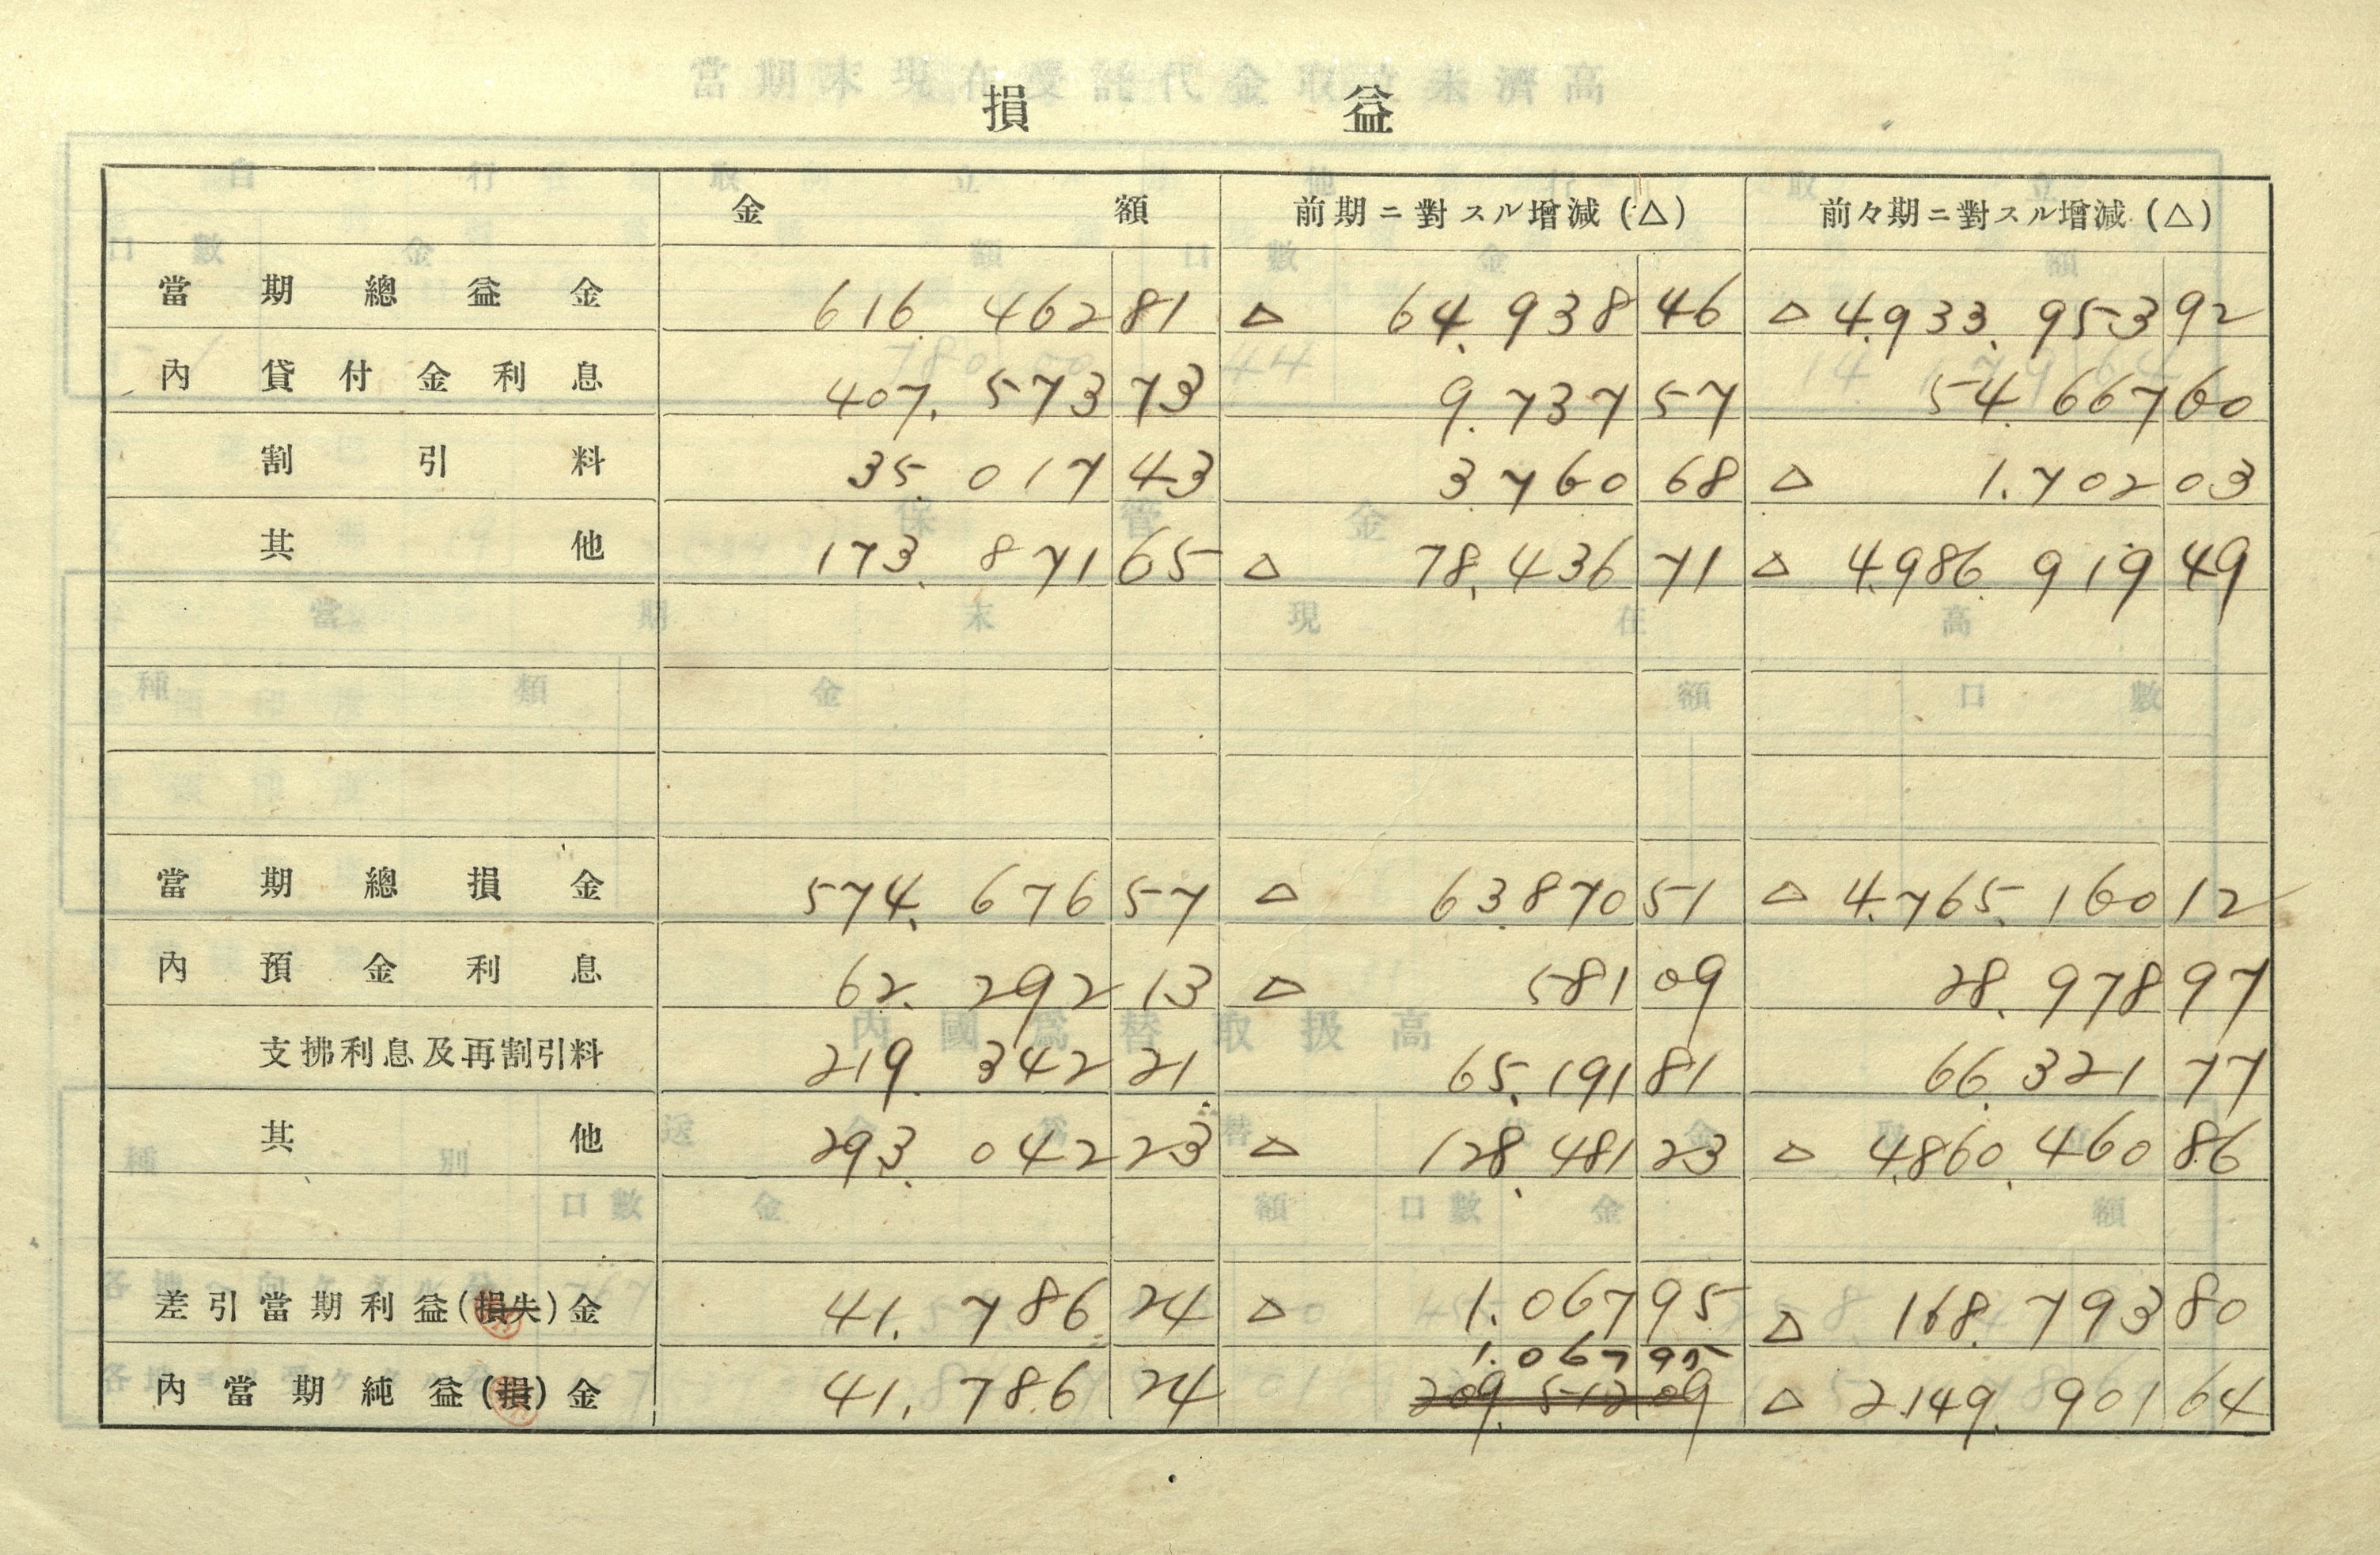 損益
金額 前期ニ對スル增減(△) 前々期ニ對スル增減(△)
當期總益金 616.462 81 △ 64.938 46 △ 4.933.953 92
內貸付金利息 407.573 73 9.737 57 54.667 60
割引料 35.017 43 3.760 68 △ 1.702 03
其他 173.871 65 △ 78.436 71 △ 4.986.919 49
當期總損金 574.676 57 △ 63.870 51 △ 4.765.160 12
內預金利息 62.292 13 △ 581 09 28.978 97
支拂利息及再割引料 219.342 21 65.191 81 66.321 77
其他 293.042 23 △ 128.481 23 △ 4.860.460 86
差引當期利益(損失)金 41.786 24 △ 1.067 95 △ 168.793 80
1.067 95
內當期純益(損)金 41.786 24 209.512 09 △ 2.149.901 64